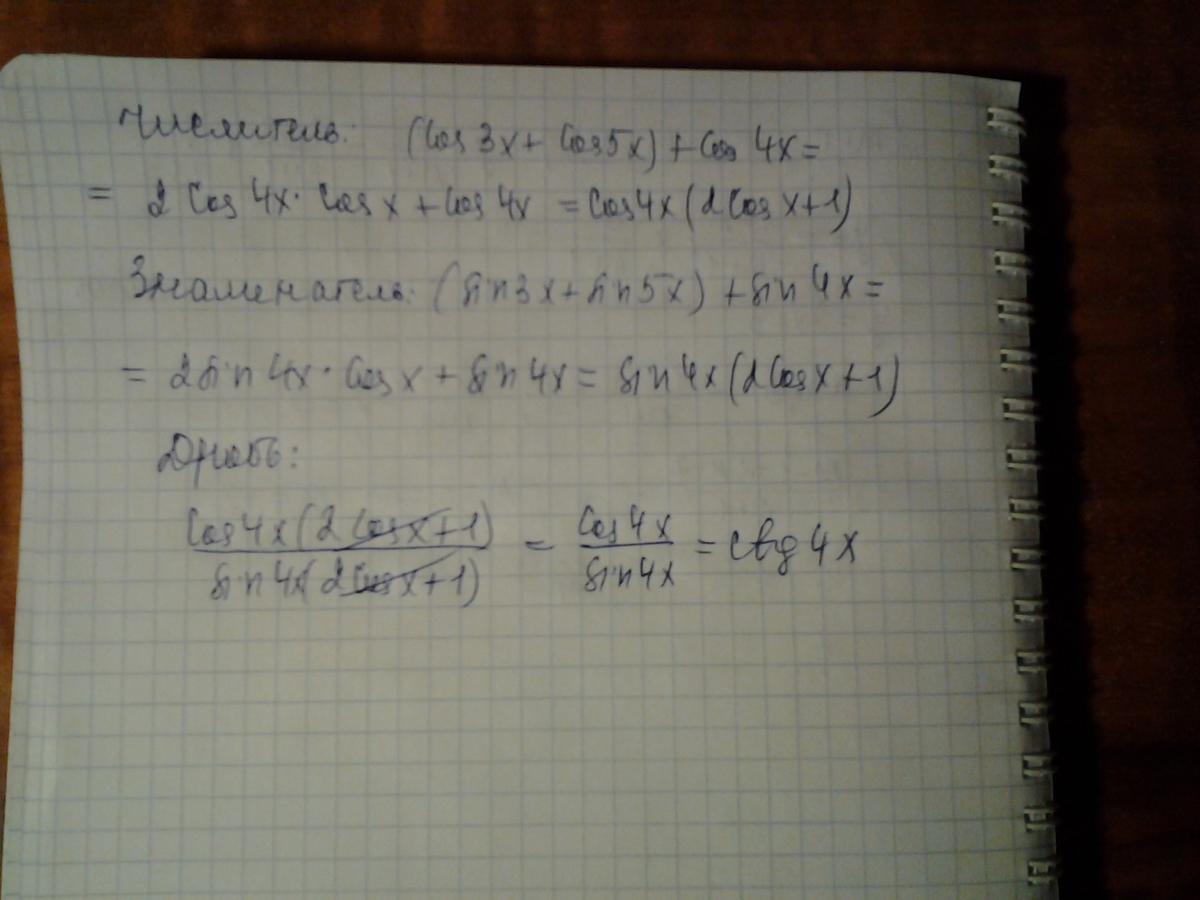 Числитель: (Cos 3x + Cos5x) + Cos 4x =
= 2 Cos 4x · Cos x + Cos 4x = Cos4x (2 Cos x+1)
Знаменатель: (sin3x + sin5x) + sin 4x =
= 2sin 4x · Cos x + sin 4x = sin 4x (2Cosx+1)
Дробь:
Cos 4x (2 Cosx+1) / sin 4x (2 Cosx+1) = Cos 4x / sin 4x = ctg 4x